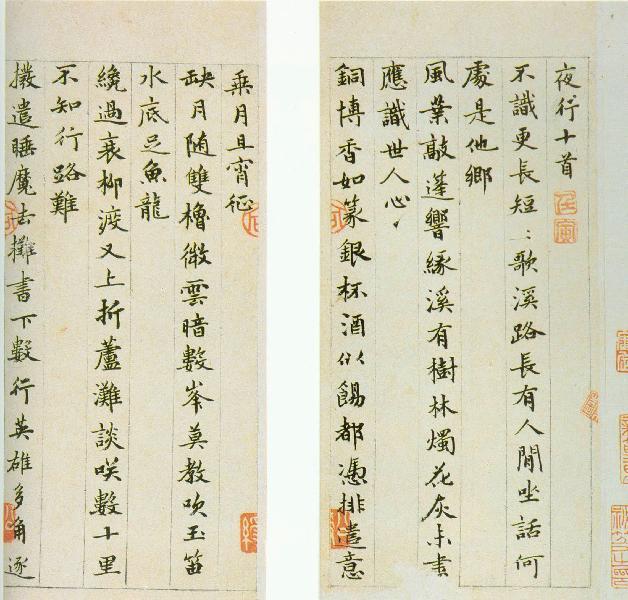 夜行十首
不識更長短〻歌溪路長有人閒坐話何
處是他鄉
風葉敲蓬響緣溪有樹林燭花灰未盡
應識世人心
銅博香如篆銀杯酒似餳都憑排遣意
乘月且宵征
缺月隨雙櫓微雲暗數峯莫教吹玉笛
水底足魚龍
繞過衰柳渡又上折蘆灘談咲數十里
不知行路難
撥遣睡魔去攤書下數行英雄多角逐